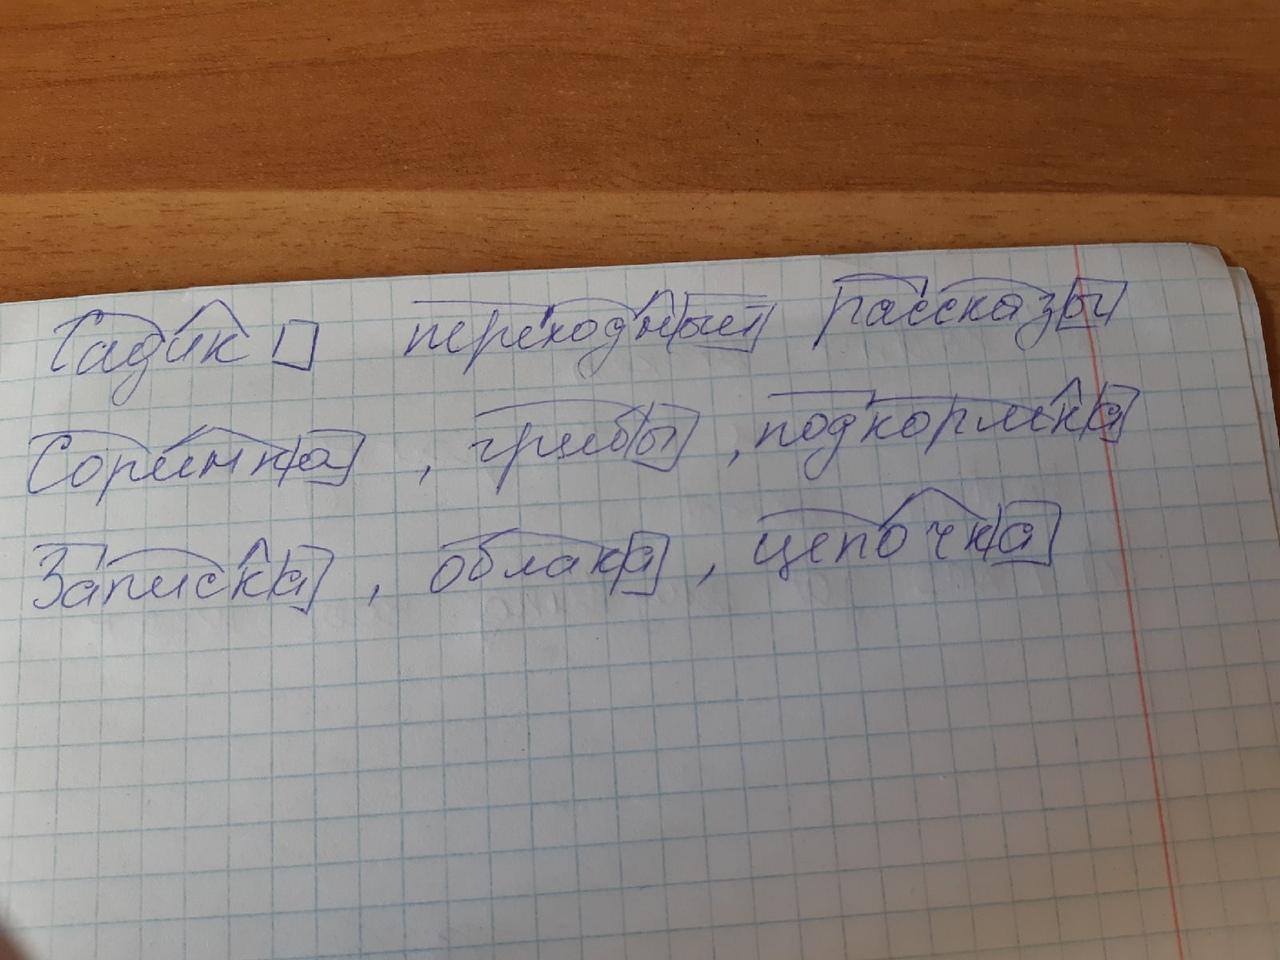 Гадик переходный рассказы
Соринка, грибы, подкормка
Записка, облака, цепочка